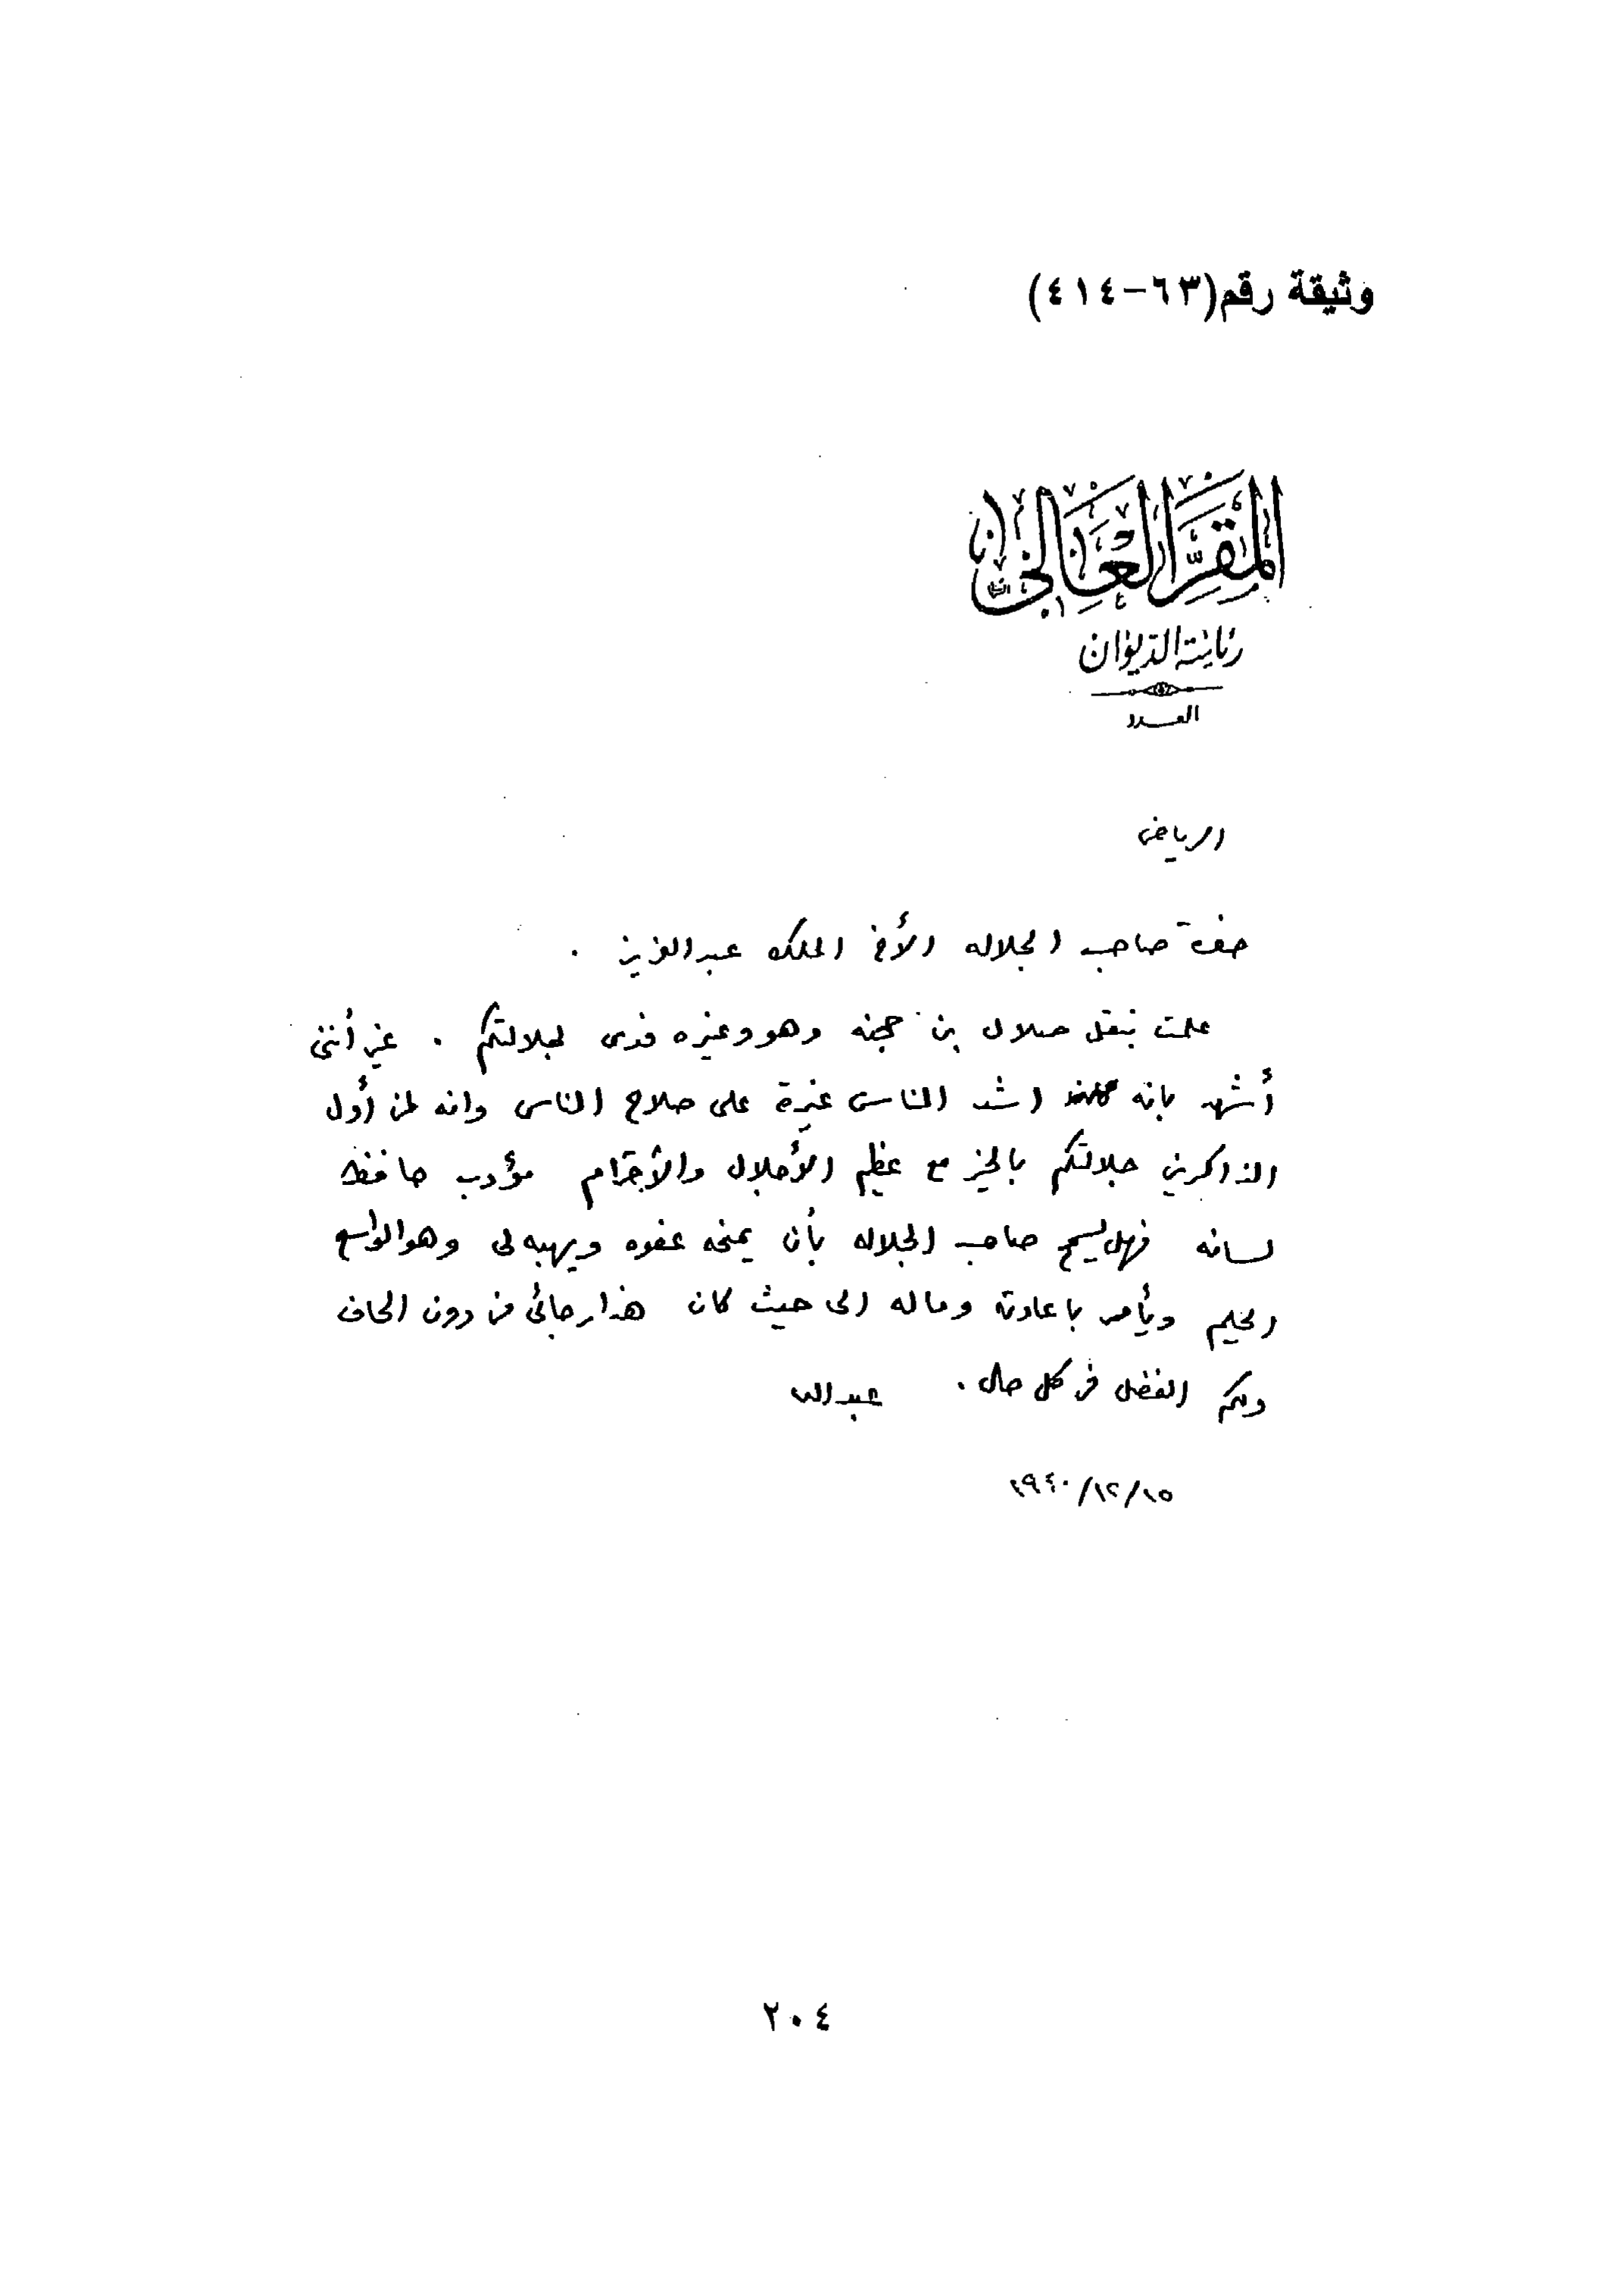 وثيقة رقم (٦٣-٤١٤)
المقر العالي
رئاسة الديوان
العدد
الرياض
حضرة صاحب الجلاله الأخ الملك عبدالعزيز .
علمت بنقل صلال بن حجنه وهو وغيره فدى لجلالتكم . غير أنني
أشهد بانه اشد الناس غيرة على صلاح الناس وانه لمن أول
الذاكرين جلالتكم بالخير مع عظيم الأجلال والأحترام مؤدب حافظ
لسانه فهل يسمح صاحب الجلاله بأن يمنحه عفوه ويهبه لي وهو الواسع
الحليم ويأمر باعادته وماله الى حيث كان هذا رجائي من دون الحاف
ولكم الفضل في كل حال . عبدالله
١٥/١٢/١٩٤٠
٢٠٤